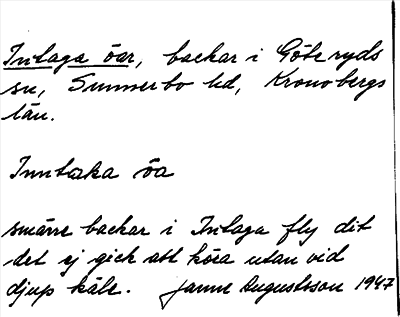 Intaga öar, backar i Göteryds
sn, Sunnerbo hd, Kronobergs
län.
Inntaka öa
smärre backar i Intaga fly dit
det ej gick att köra utan vid
djup käle. Janne Augustsson 1947